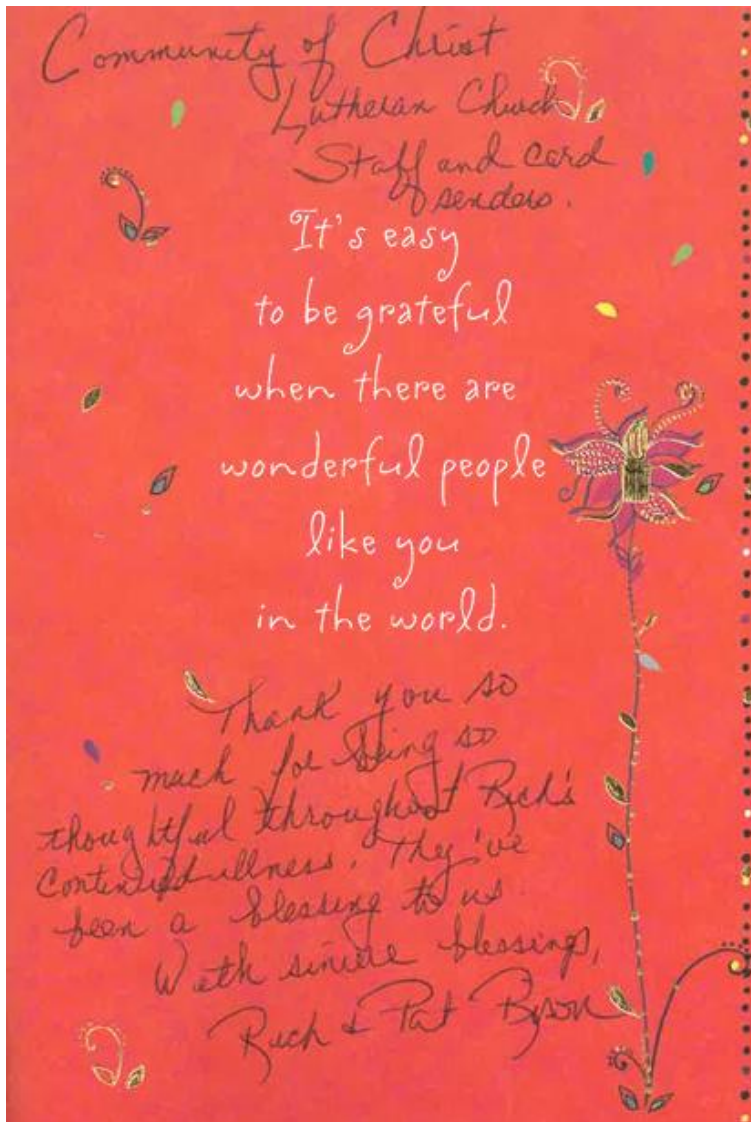 Community of Christ
Lutheran Church
Staff and card
senders.
It's easy
to be grateful
when there are
wonderful people
like you
in the world.
Thank you so
much for being so
thoughtful throughout Rich's
continued illness. They've
been a blessing to us
With sincere blessings,
Rich & Pat